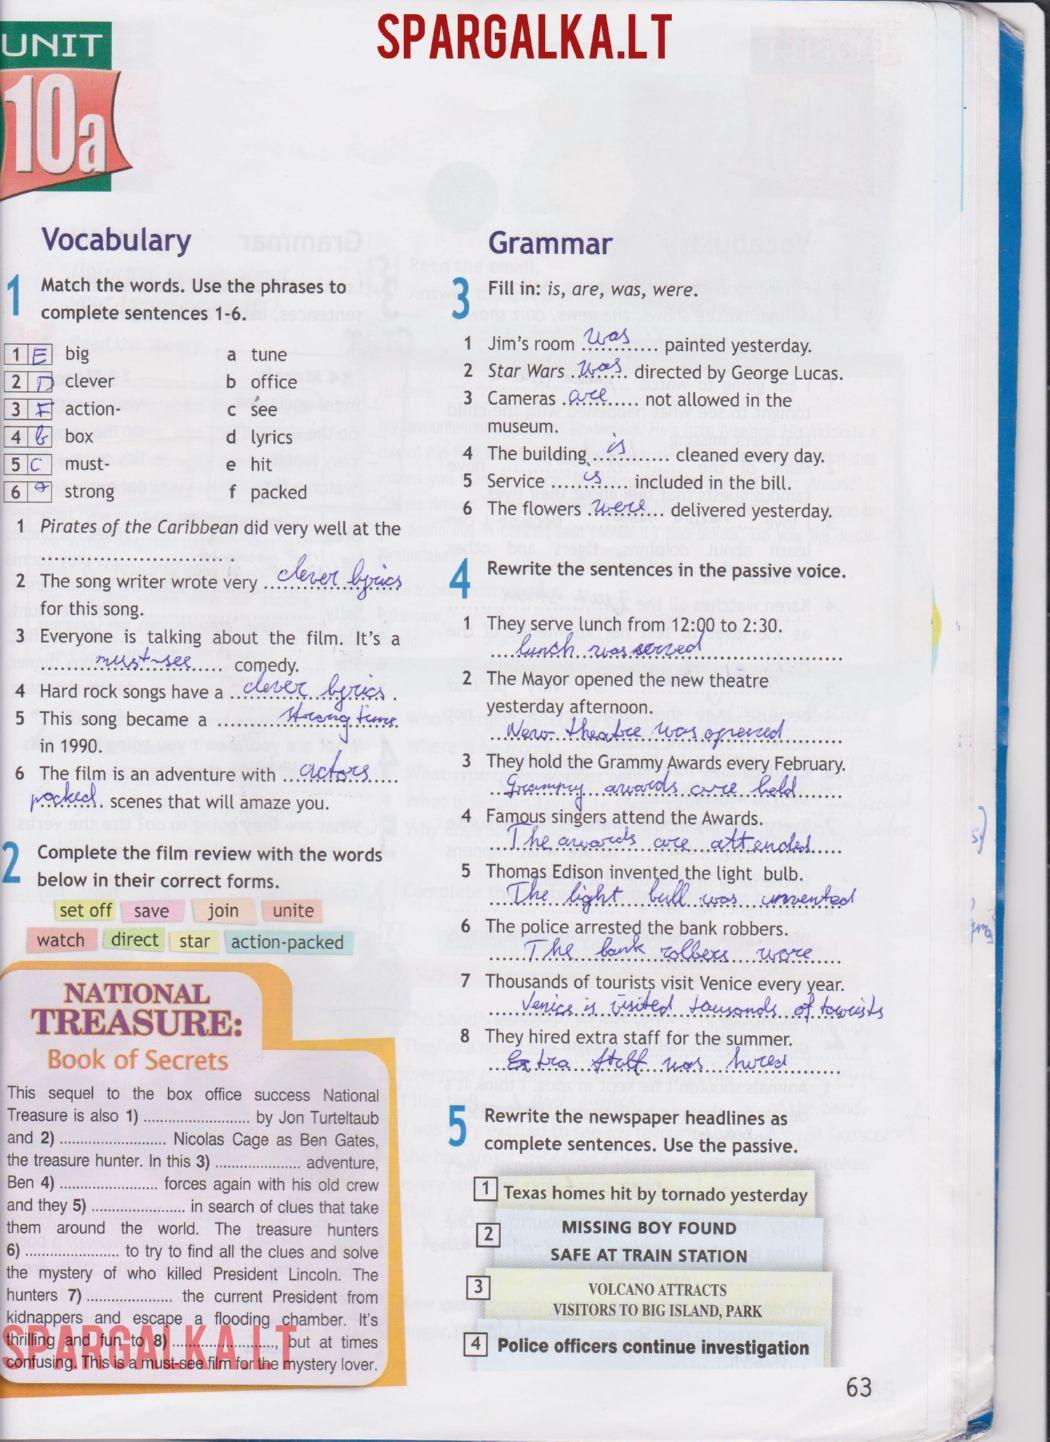 SPARGALKA.LT
UNIT
10a
Vocabulary
1 Match the words. Use the phrases to
complete sentences 1-6.
1 E big a tune
2 D clever b office
3 F action- c see
4 b box d lyrics
5 C must- e hit
6 a strong f packed
1 Pirates of the Caribbean did very well at the
..............................
2 The song writer wrote very clever lyrics
for this song.
3 Everyone is talking about the film. It's a
must-see comedy.
4 Hard rock songs have a clever lyrics.
5 This song became a strong tune
in 1990.
6 The film is an adventure with actors
packed scenes that will amaze you.
2 Complete the film review with the words
below in their correct forms.
set off save join unite
watch direct star action-packed
NATIONAL
TREASURE:
Book of Secrets
This sequel to the box office success National
Treasure is also 1) .................... by Jon Turteltaub
and 2) .................... Nicolas Cage as Ben Gates,
the treasure hunter. In this 3) .................... adventure,
Ben 4) .................... forces again with his old crew
and they 5) .................... in search of clues that take
them around the world. The treasure hunters
6) .................... to try to find all the clues and solve
the mystery of who killed President Lincoln. The
hunters 7) .................... the current President from
kidnappers and escape a flooding chamber. It's
thrilling and fun to 8) ...................., but at times
confusing. This is a must-see film for the mystery lover.
SPARGALKA.LT
Grammar
3 Fill in: is, are, was, were.
1 Jim's room was painted yesterday.
2 Star Wars was directed by George Lucas.
3 Cameras are not allowed in the
museum.
4 The building is cleaned every day.
5 Service is included in the bill.
6 The flowers were delivered yesterday.
4 Rewrite the sentences in the passive voice.
1 They serve lunch from 12:00 to 2:30.
lunch was served
2 The Mayor opened the new theatre
yesterday afternoon.
New theatre was opened
3 They hold the Grammy Awards every February.
Grammy awards are held
4 Famous singers attend the Awards.
The awards are attended
5 Thomas Edison invented the light bulb.
The light bull was invented
6 The police arrested the bank robbers.
The bank robbers were
7 Thousands of tourists visit Venice every year.
Venice is visited tousands of tourists
8 They hired extra staff for the summer.
Extra staff was hired
5 Rewrite the newspaper headlines as
complete sentences. Use the passive.
1 Texas homes hit by tornado yesterday
2 MISSING BOY FOUND
SAFE AT TRAIN STATION
3 VOLCANO ATTRACTS
VISITORS TO BIG ISLAND, PARK
4 Police officers continue investigation
63